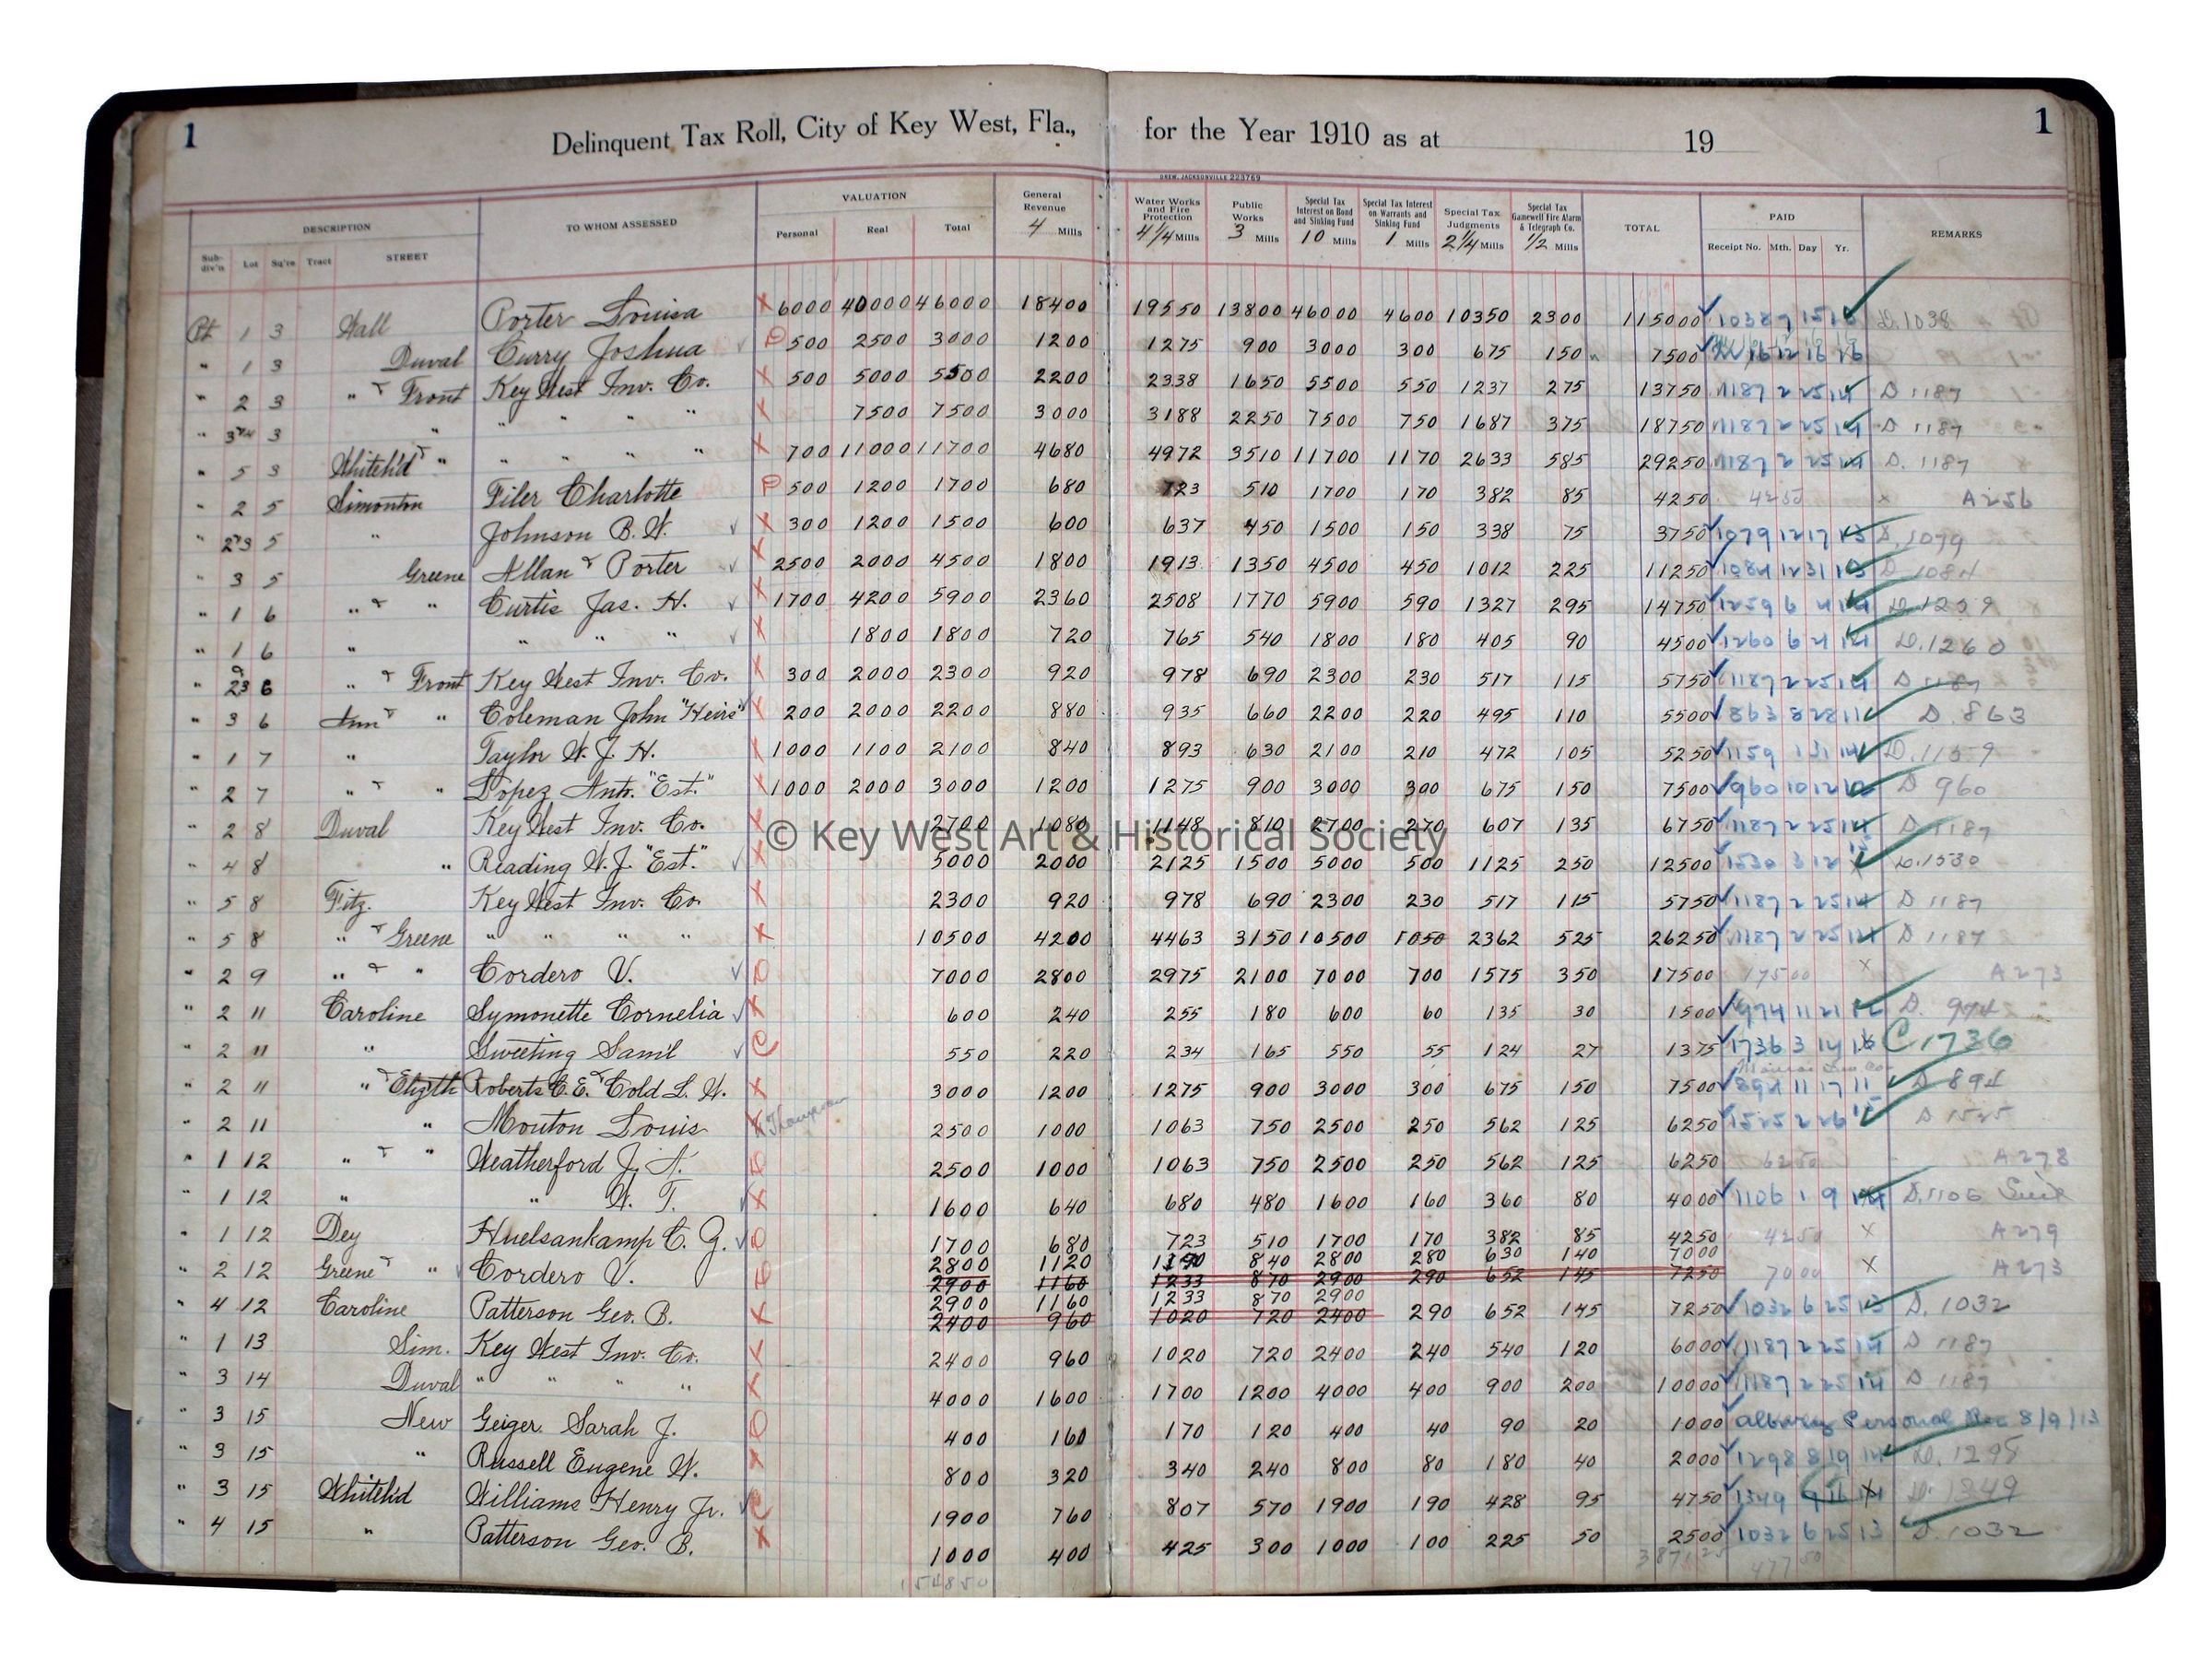 1 1
Delinquent Tax Roll, City of Key West, Fla., for the Year 1910 as at 19
DREW, JACKSONVILLE 223769
DESCRIPTION TO WHOM ASSESSED VALUATION General Revenue 4 Mills Water Works and Fire Protection 4 1/4 Mills Public Works 3 Mills Special Tax Interest on Bond and Sinking Fund 10 Mills Special Tax Interest on Warrants and Sinking Fund 1 Mills Special Tax Judgments 2 1/4 Mills Special Tax Gamewell Fire Alarm & Telegraph Co. 1/2 Mills TOTAL PAID REMARKS
Sub-div'n Lot Sq're Tract STREET Personal Real Total Receipt No. Mth. Day Yr.
Pt 1 3 Wall Porter Louisa X 6000 40000 46000 18400 19550 13800 46000 4600 10350 2300 115000 D.1038
" 1 3 Duval Curry Joshua 500 2500 3000 1200 1275 900 3000 300 675 150 7500
" 2 3 " & Front Key West Inv. Co. X 500 5000 5500 2200 2338 1650 5500 550 1237 275 13750 1187 2 25 14 D 1187
" 3&4 3 " " " " X 7500 7500 3000 3188 2250 7500 750 1687 375 18750 1187 2 25 14 D 1187
" 5 3 Whiteh'd & " " " " " X 700 11000 11700 4680 4972 3510 11700 1170 2633 585 29250 1187 2 25 14 D. 1187
" 2 5 Simonton Filer Charlotte 500 1200 1700 680 723 510 1700 170 382 85 4250 4250 x A256
" 2&3 5 " Johnson B. W. X 300 1200 1500 600 637 450 1500 150 338 75 3750 1079 12 17 13 D. 1079
" 3 5 Greene Allan & Porter X 2500 2000 4500 1800 1913 1350 4500 450 1012 225 11250 1084 12 31 13 D 1084
" 1 6 " & " Curtis Jas. H. X 1700 4200 5900 2360 2508 1770 5900 590 1327 295 14750 1259 6 4 14 D.1259
" 1 6 " " " " X 1800 1800 720 765 540 1800 180 405 90 4500 1260 6 4 14 D.1260
" 2&3 6 " & Front Key West Inv. Co. X 300 2000 2300 920 978 690 2300 230 517 115 5750 1187 2 25 14 D 1187
" 3 6 Ann & " Coleman John "Heirs" X 200 2000 2200 880 935 660 2200 220 495 110 5500 863 8 28 11 D. 863
" 1 7 " Taylor W. J. H. X 1000 1100 2100 840 893 630 2100 210 472 105 5250 1159 1 31 14 D.1159
" 2 7 " & " Lopez Anto. "Est." X 1000 2000 3000 1200 1275 900 3000 300 675 150 7500 960 10 12 D 960
" 2 8 Duval Key West Inv. Co. X 2700 1080 1148 810 2700 270 607 135 6750 1187 2 25 14 D 1187
© Key West Art & Historical Society
" 4 8 " Reading W. J. "Est." X 5000 2000 2125 1500 5000 500 1125 250 12500 1530 3 12 15 D.1530
" 5 8 Fitz. Key West Inv. Co. X 2300 920 978 690 2300 230 517 115 5750 1187 2 25 14 D 1187
" 5 8 " & Greene " " " " X 10500 4200 4463 3150 10500 1050 2362 525 26250 1187 2 25 14 D 1187
" 2 9 " & " Cordero V. 7000 2800 2975 2100 7000 700 1575 350 17500 17500 x A273
" 2 11 Caroline Symonette Cornelia X 600 240 255 180 600 60 135 30 1500 974 11 21 12 D. 974
" 2 11 " Sweeting Saml C 550 220 234 165 550 55 124 27 1375 1736 3 14 16 C 1736
" 2 11 " & Elizth Roberts C. E. & Cold L. W. X 3000 1200 1275 900 3000 300 675 150 7500 894 11 17 11 D 894
" 2 11 " Mouton Louis X Thompson 2500 1000 1063 750 2500 250 562 125 6250 1525 2 26 15 D 1525
" 1 12 " & " Weatherford J. A. 2500 1000 1063 750 2500 250 562 125 6250 6250 A278
" 1 12 " " W. T. X 1600 640 680 480 1600 160 360 80 4000 1106 1 9 14 D.1106
" 1 12 Dey Huelsankamp C. G. 1700 680 723 510 1700 170 382 85 4250 4250 x A279
2800 1120 1190 840 2800 280 630 140 7000
" 2 12 Greene & " Cordero V. 2900 1160 1233 870 2900 290 652 145 7250 7000 x A273
2900 1160 1233 870 2900
" 4 12 Caroline Patterson Geo. B. X 2400 960 1020 720 2400 290 652 145 7250 1032 6 25 13 D. 1032
" 1 13 Sim. Key West Inv. Co. X 2400 960 1020 720 2400 240 540 120 6000 1187 2 25 14 D 1187
" 3 14 Duval " " " " X 4000 1600 1700 1200 4000 400 900 200 10000 1187 2 25 14 D 1187
" 3 15 New Geiger Sarah J. 400 160 170 120 400 40 90 20 1000 Albury Personal Rec 8/9/13
" 3 15 " Russell Eugene W. X 800 320 340 240 800 80 180 40 2000 1298 8 19 14 D. 1298
" 3 15 Whiteh'd Williams Henry Jr. C 1900 760 807 570 1900 190 428 95 4750 1349
" 4 15 " Patterson Geo. B. X 1000 400 425 300 1000 100 225 50 2500 1032 6 25 13 D. 1032
154850 477 50